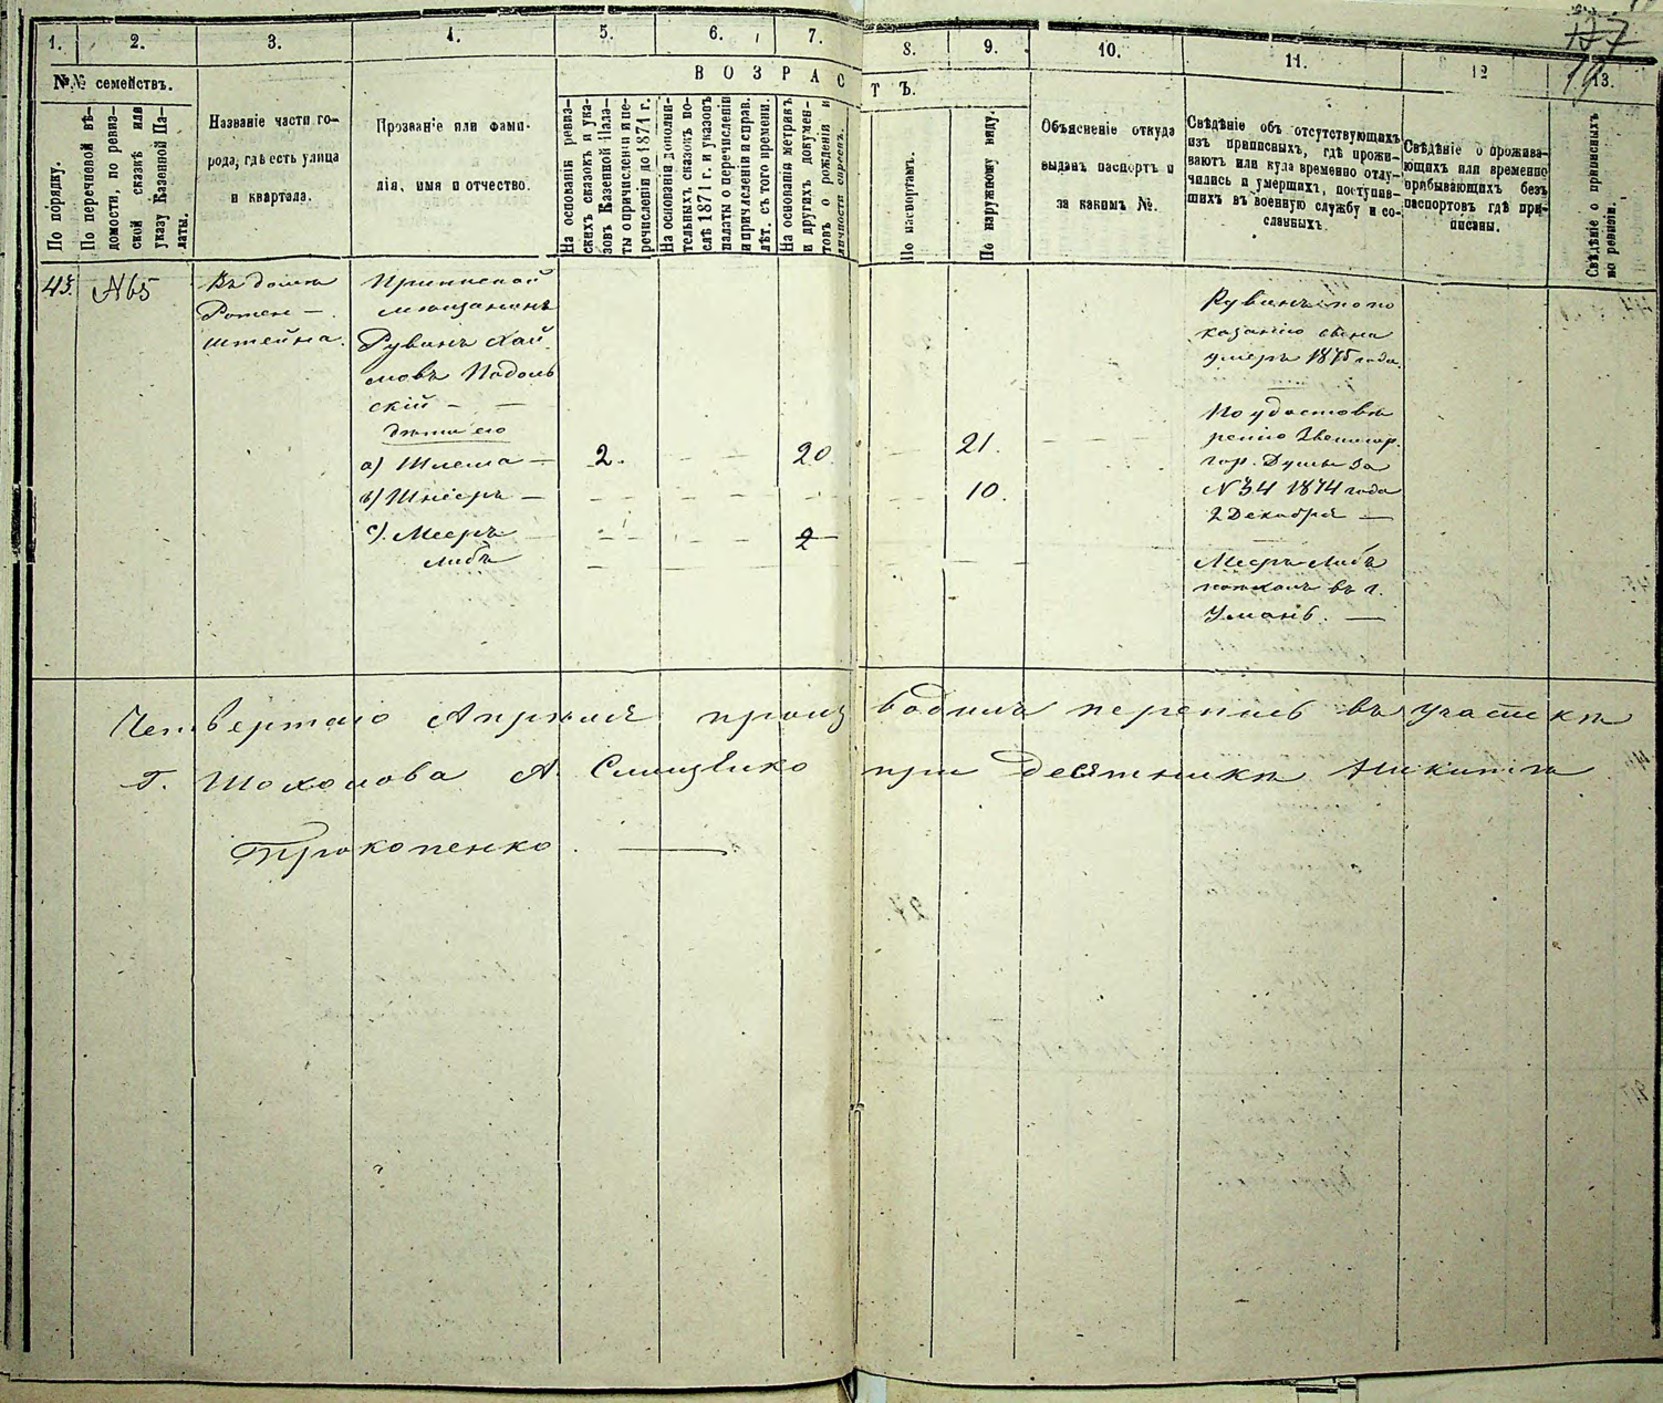 1. 2. 3. 4. 5. 6. 7. 8. 9. 10. 11. 12 13.
127
19
№№ семействъ.
По порядку.
По перечневой вѣ-
домости, по ревиз-
ской сказкѣ или
указу Казенной Па-
латы.
Названіе части го-
рода, гдѣ есть улица
и квартала.
Прозваніе или фами-
лія, имя и отчество.
ВОЗРАСТЪ.
На основаніи ревиз-
скихъ сказокъ и ука-
зовъ Казенной Пала-
ты о причисленіи и пе-
речисленіи до 1871 г.
На основаніи дополни-
тельныхъ сказокъ по-
слѣ 1871 г. и указовъ
палаты о перечисленіи
и причисленіи и справ.
лѣт. съ того времени.
На основаніи метрикъ
и другихъ докумен-
товъ о рожденіи и
личности справк.
По паспортамъ.
По наружному виду.
Объясненіе откуда
выданъ паспортъ и
за какимъ №.
Свѣдѣніе объ отсутствующихъ
изъ приписныхъ, гдѣ прожи-
ваютъ или куда временно отлу-
чились и умершихъ, поступив-
шихъ въ военную службу и со-
сланныхъ.
Свѣдѣніе о прожива-
ющихъ или временно
прибывающихъ безъ
паспортовъ гдѣ при-
писаны.
Свѣдѣніе о приписныхъ
по ревизіи.
45. №65
Въ домѣ
Ротен-
штейна.
Приписной
мѣщанинъ
Рувинъ Хай-
мовъ Подоль
скій
дѣти его
а) Шлема — 2. 20 21.
в) Шнееръ — 10.
с) Мееръ 2
Либъ
Рувинъ по по
казанію сына
умеръ 1875 года.
По удостовѣ
ренію Звенигор.
гор. Думы за
№ 34 1874 года
2 Декабря —
Мееръ Либъ
въ г.
Умань. —
Четвертаго Апрѣля производилъ перепись въ участкѣ
Г. Шохолова А. при десятникѣ Никитѣ
Прокопенко. —